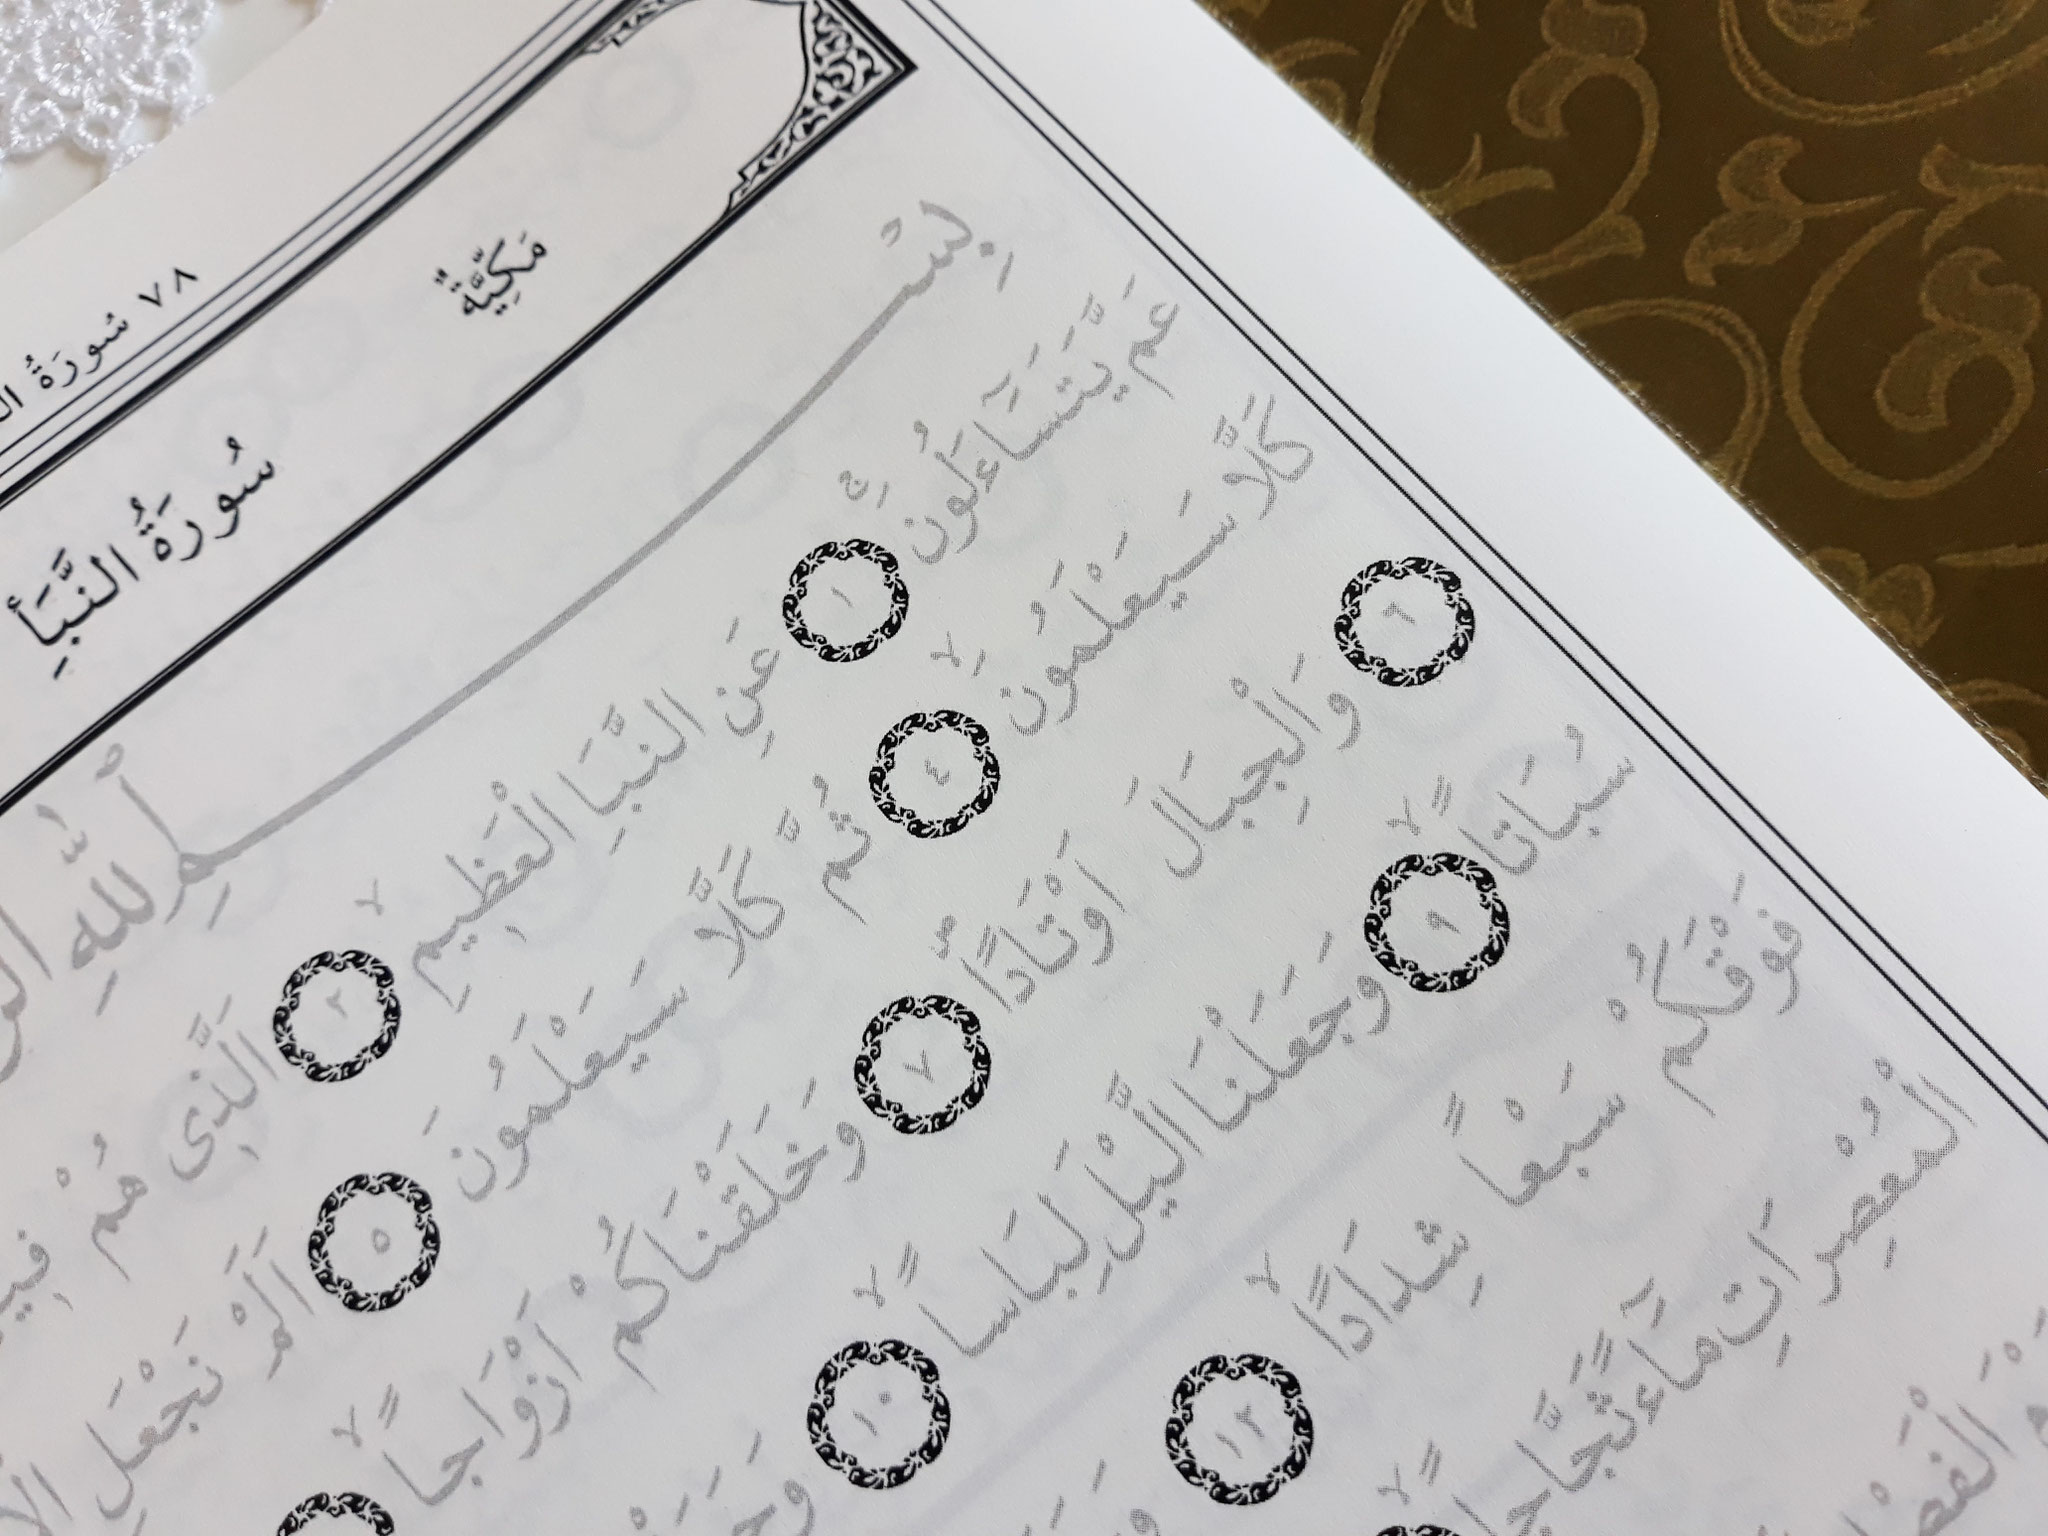 ٧٨ سُورَةُ
مَكِّيَّةٌ
سُورَةُ النَّبَأِ
بِسْمِ ٱللّٰهِ
عَمَّ يَتَسَٓاءَلُونَۚ ١ عَنِ النَّبَاِ الْعَظ۪يمِۙ ٢ اَلَّذ۪ى هُمْ
كَلَّا سَيَعْلَمُونَۙ ٤ ثُمَّ كَلَّا سَيَعْلَمُونَ ٥ اَلَمْ نَجْعَلِ
٦ وَالْجِبَالَ اَوْتَادًاۖ ٧ وَخَلَقْنَاكُمْ اَزْوَاجاًۙ
سُبَاتاًۙ ٩ وَجَعَلْنَا الَّيْلَ لِبَاساًۙ ١٠
فَوْقَكُمْ سَبْعاً شِدَادًاۙ ١٢
الْمُعْصِرَاتِ مَٓاءً ثَجَّاجاًۙ